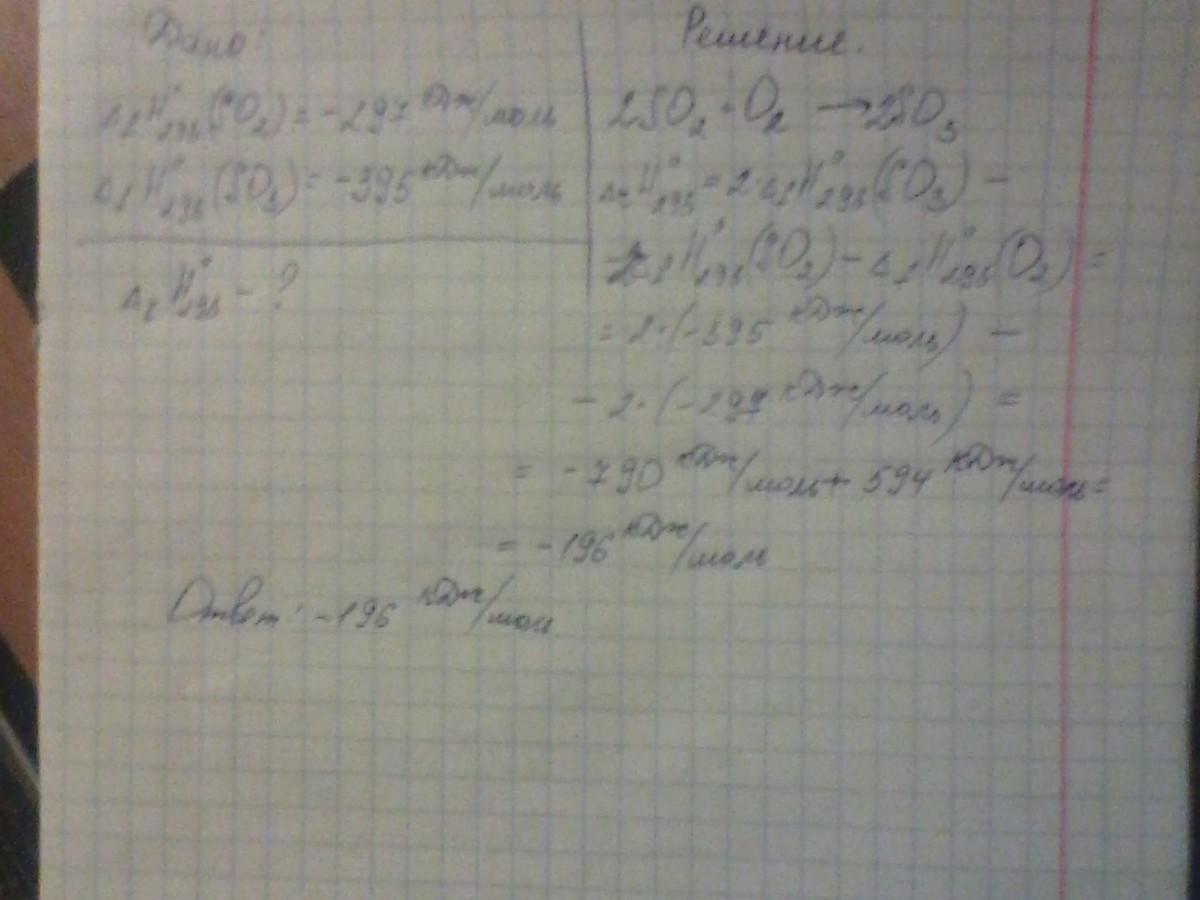 Дано:
Δ_f H°₂₉₈(SO₂) = -297 кДж/моль
Δ_f H°₂₉₈(SO₃) = -395 кДж/моль
Δ_r H°₂₉₈ - ?
Решение.
2SO₂ + O₂ → 2SO₃
Δ_r H°₂₉₈ = 2·Δ_f H°₂₉₈(SO₃) -
- 2Δ_f H°₂₉₈(SO₂) - Δ_f H°₂₉₈(O₂) =
= 2·(-395 кДж/моль) -
- 2·(-297 кДж/моль) =
= -790 кДж/моль + 594 кДж/моль =
= -196 кДж/моль
Ответ: -196 кДж/моль